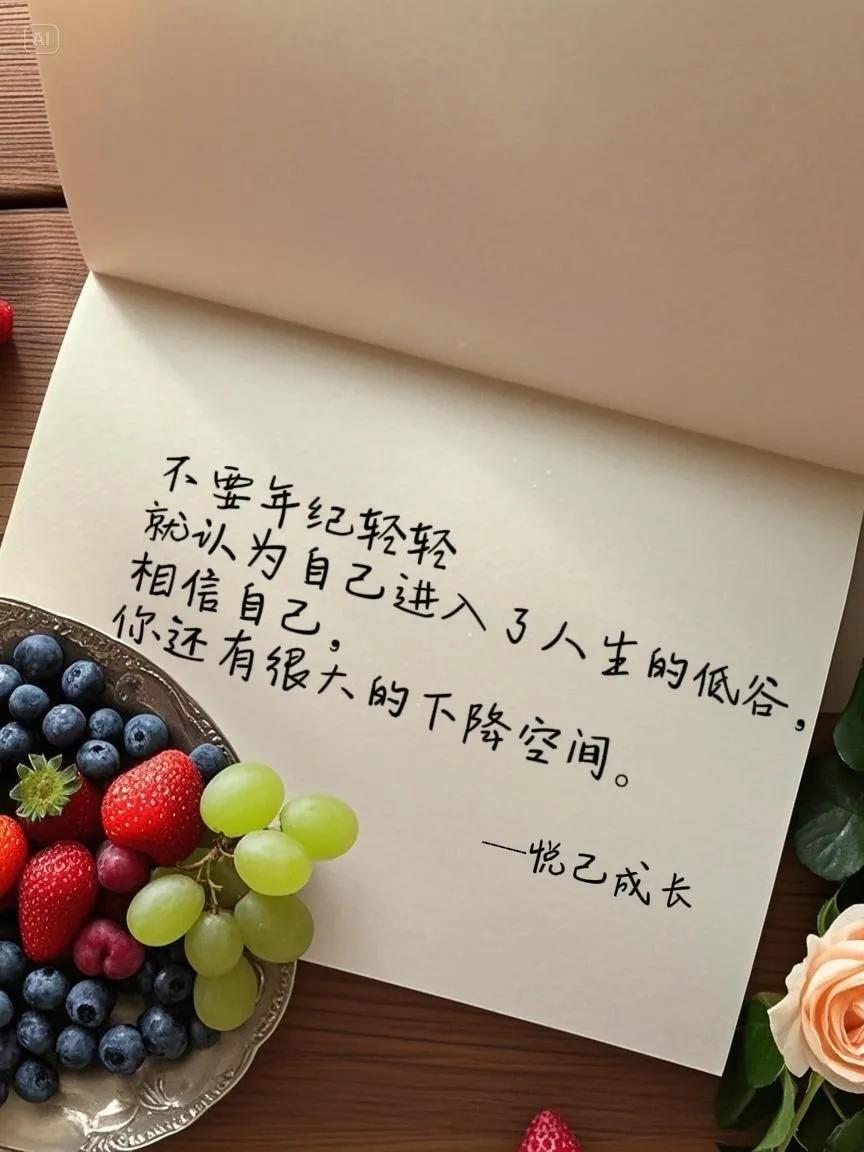 AI
不要年纪轻轻
就认为自己进入了人生的低谷，
相信自己，
你还有很大的下降空间。
一悦己成长